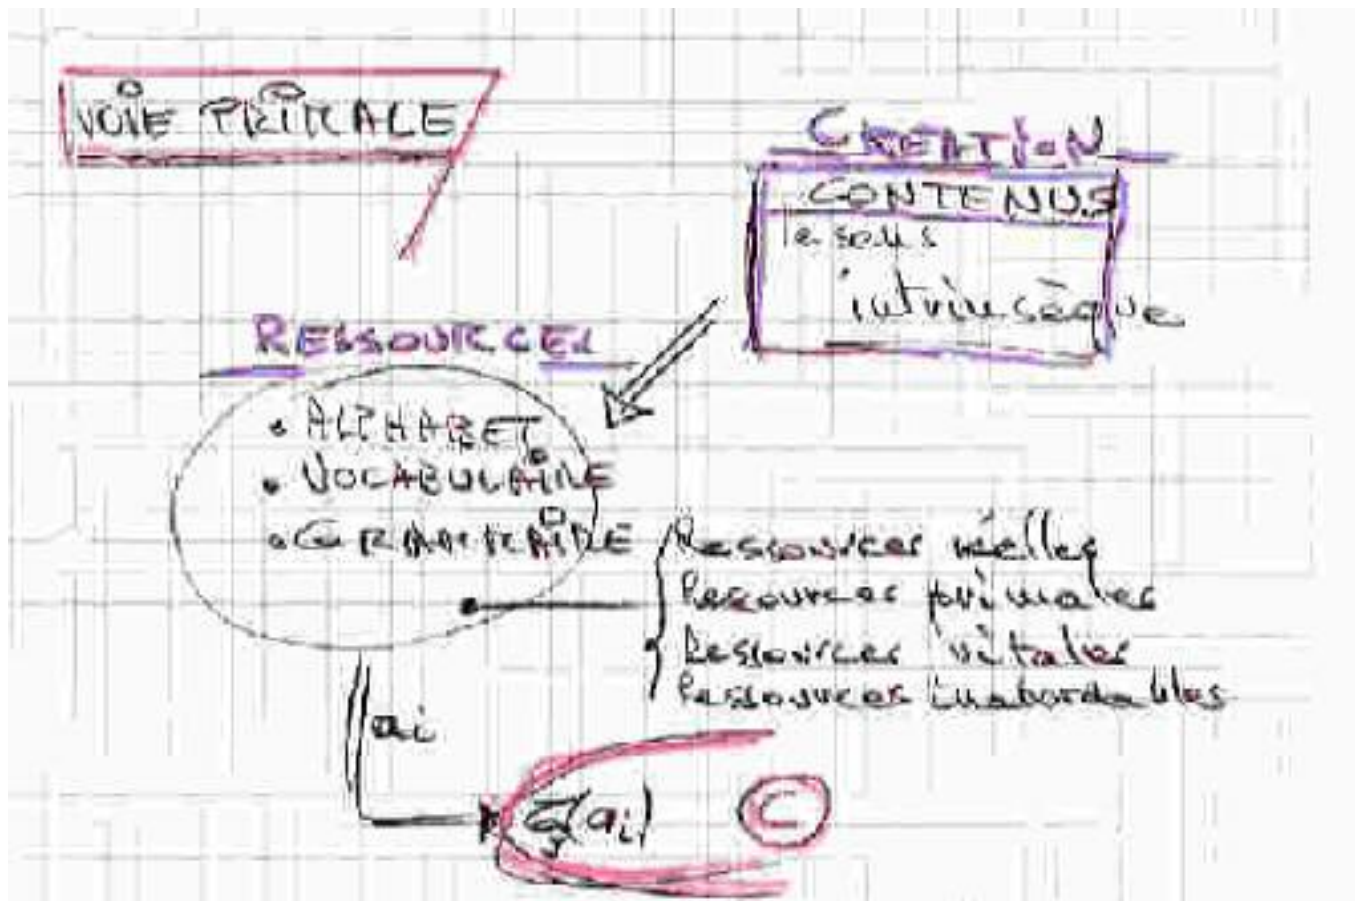 VOIE PRIMALE
CREATION
CONTENUS
le sens
intrinsèque
RESSOURCES
• ALPHABET
• VOCABULAIRE
• GRAMMAIRE
Ressources réelles
Ressources primales
Ressources vitales
Ressources inabordables
ai
(ai)
C